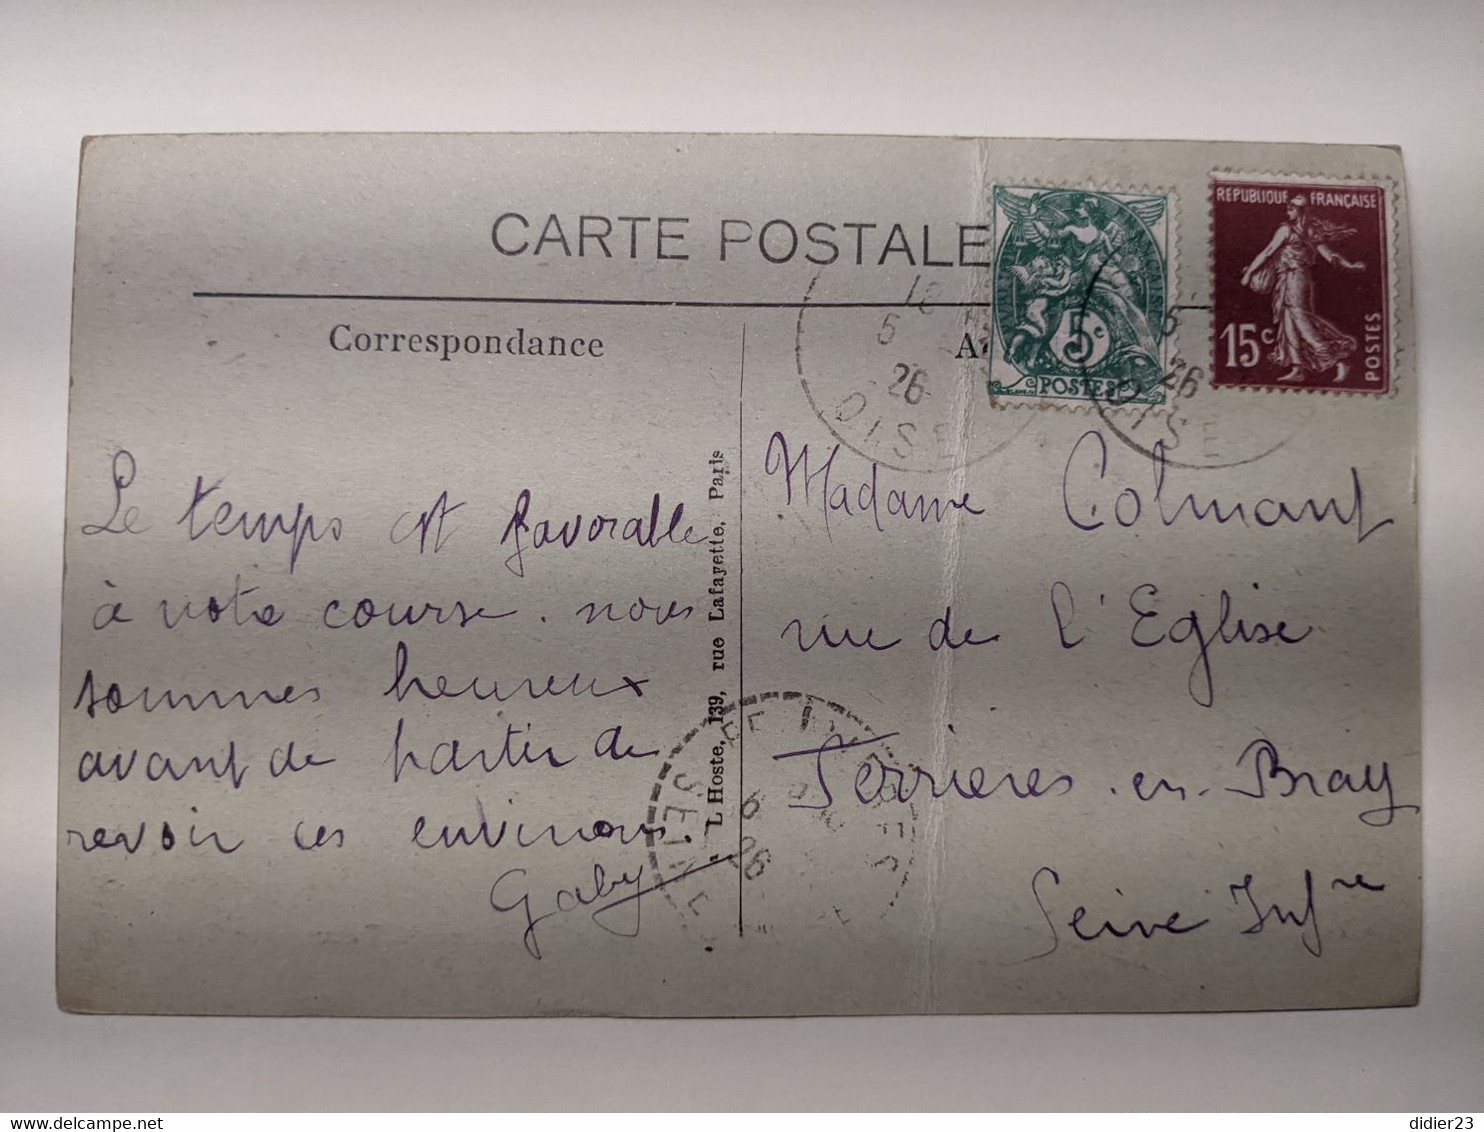 CARTE POSTALE
Correspondance
Le temps est favorable
à votre course. nous
sommes heureux
avant de partir de
revoir ces environs.
Gaby
L. Hoste, 139, rue Lafayette, Paris
5c
POSTES
REPUBLIQUE FRANÇAISE
15c
POSTES
5
26
OISE
5
26
OISE
Madame Colmant
rue de l'Eglise
Ferrieres-en-Bray
Seine Infre
6
26
SEINE
didier23